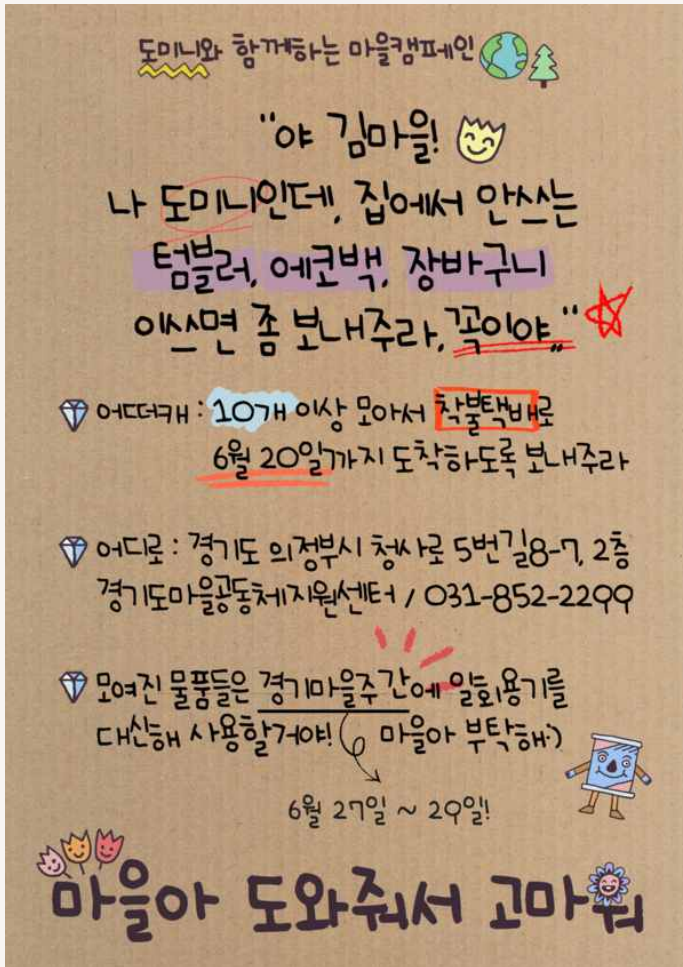 도미니와 함께하는 마을캠페인
"야 김마을!
나 도미니인데, 집에서 안쓰는
텀블러, 에코백, 장바구니
이쓰면 좀 보내주라, 꼭이야"
어떠캐 : 10개 이상 모아서 착불택배로
6월 20일까지 도착하도록 보내주라
어디로 : 경기도 의정부시 청사로 5번길8-7, 2층
경기도마을공동체지원센터 / 031-852-2299
모여진 물품들은 경기마을주간에 일회용기를
대신해 사용할거야! 마을아 부탁해:)
6월 27일 ~ 29일!
마을아 도와줘서 고마워